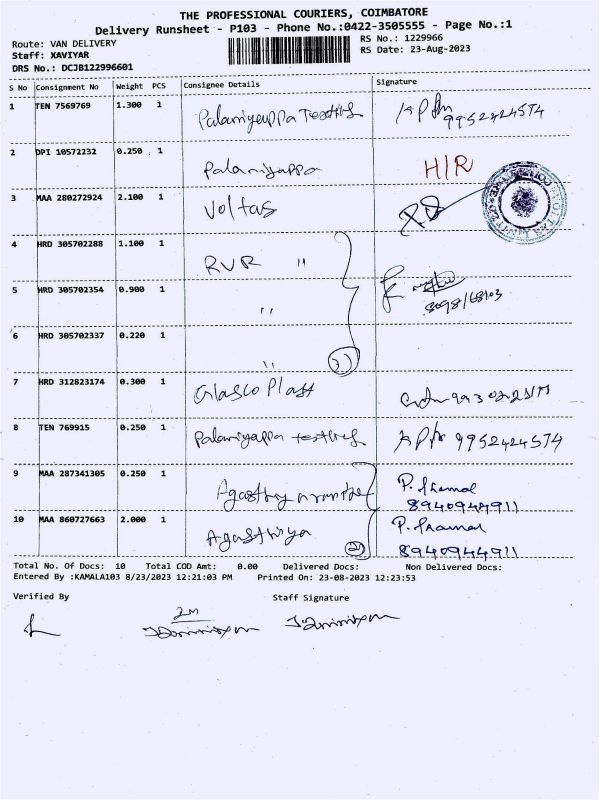 THE PROFESSIONAL COURIERS, COIMBATORE
Delivery Runsheet - P103 - Phone No.:0422-3505555 - Page No.:1
Route: VAN DELIVERY RS No.: 1229966
Staff: XAVIYAR RS Date: 23-Aug-2023
DRS No.: DCJB122996601
S No Consignment No Weight PCS Consignee Details Signature
1 TEN 7569769 1.300 1 9952424574
2 DPI 10572232 0.250 1 Palaniyappa H/R
3 MAA 280272924 2.100 1 Voltas
4 HRD 305702288 1.100 1 RVR "
5 HRD 305702354 0.900 1 "
6 HRD 305702337 0.220 1 "
7 HRD 312823174 0.300 1 Glasco Plast
8 TEN 769915 0.250 1 9952424574
9 MAA 287341305 0.250 1
8940944911
10 MAA 860727663 2.000 1 Agasthiya
8940944911
Total No. Of Docs: 10 Total COD Amt: 0.00 Delivered Docs: Non Delivered Docs:
Entered By :KAMALA103 8/23/2023 12:21:03 PM Printed On: 23-08-2023 12:23:53
Verified By Staff Signature